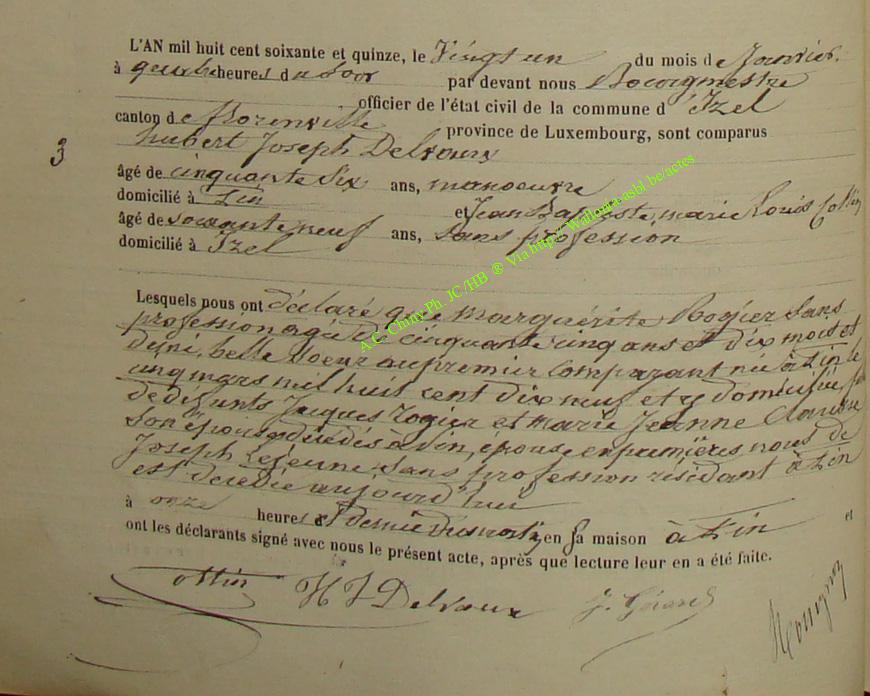 L'AN mil huit cent soixante et quinze, le Vingt un du mois de Janvier
à quatre heures du Soir par devant nous Bourgmestre
officier de l'état civil de la commune d'Izel
canton de Florenville province de Luxembourg, sont comparus
3
hubert Joseph Delvaux
âgé de cinquante Six ans, manoeuvre
domicilié à Pin et Jean Baptiste marie Louis Collin
âgé de soixante neuf ans, Sans profession
domicilié à Izel
Lesquels nous ont déclaré que Marguérite Rogier Sans
profession agée de cinquante cinq ans et dix mois et
demi, belle Soeur au premier Comparant née à Pin le
cinq mars mil huit cent dix neuf et y domiciliée
de défunts Jacques Rogier et Marie Jeanne
Son épouse décédés à Pin, épouse en premières noces de
Joseph Lejeune Sans profession résidant à Pin
est décédée aujourd'hui
à onze heures et demie du matin en sa maison à Pin et
ont les déclarants signé avec nous le présent acte, après que lecture leur en a été faite.
Collin H J Delvaux J. Gérard
A.C. Chiny Ph. JC/HB ® Via http://Wallonia-asbl.be/actes